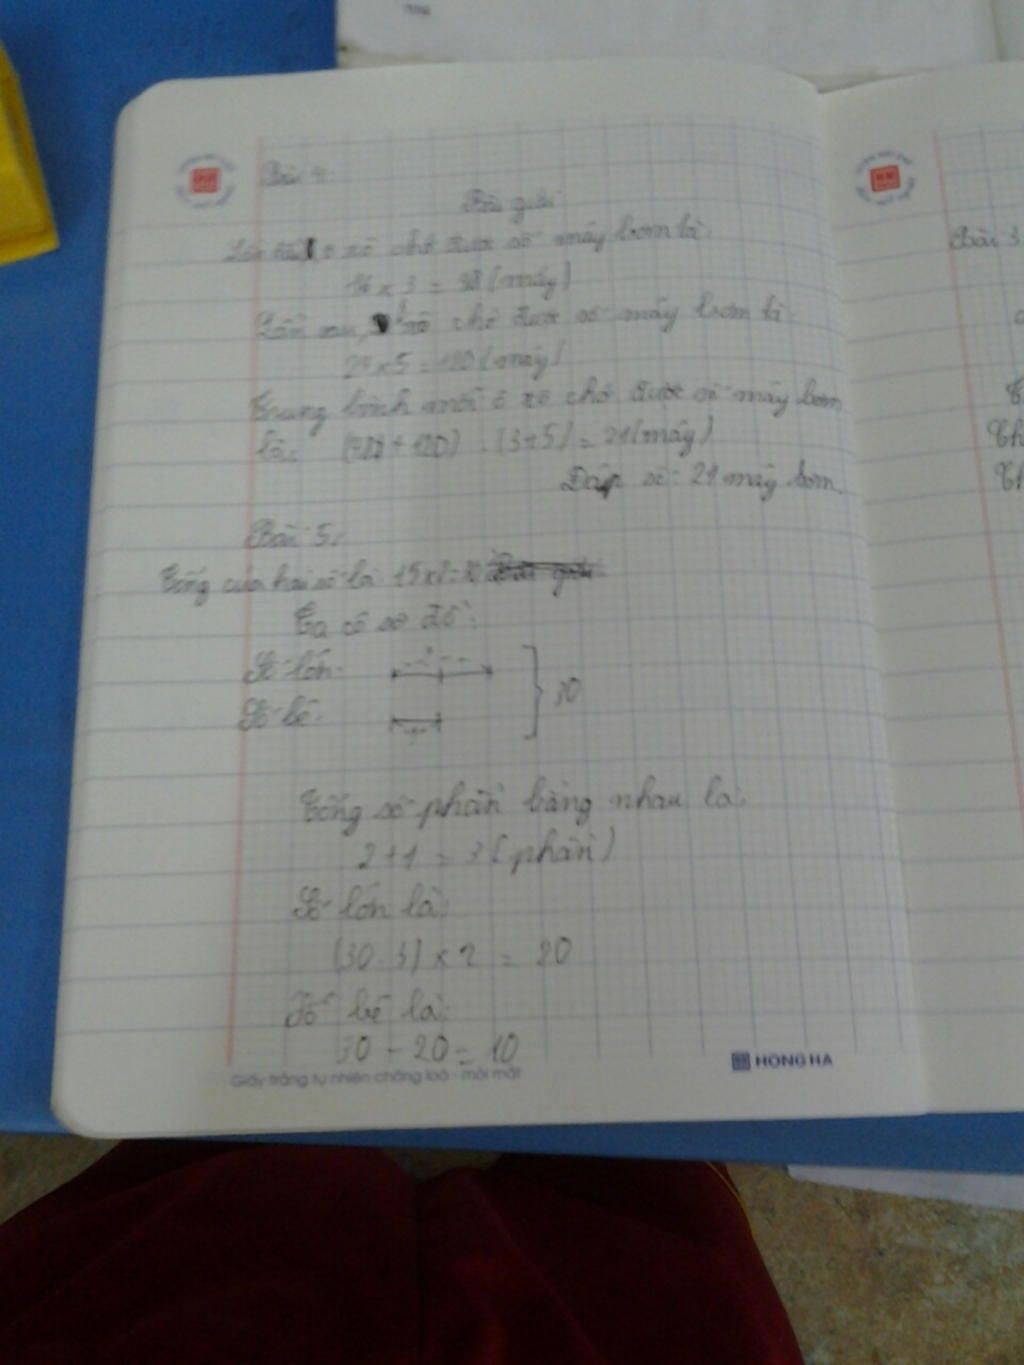 Bài 4:
Bài giải
Lần đầu ô tô chở được số máy bơm là:
16 x 3 = 48 (máy)
Lần sau, ô tô chở được số máy bơm là:
24 x 5 = 120 (máy)
Trung bình mỗi ô tô chở được số máy bơm
là: + 120) : (3+5) = 21 (máy)
Đáp số: 21 máy bơm.
Bài 5:
Tổng của hai số là 15x2=30
Ta có sơ đồ:
Số lớn:
Số bé:
30
Tổng số phần bằng nhau là:
2+1 = 3 (phần)
Số lớn là:
(30:3) x 2 = 20
Số bé là:
30 - 20 = 10
Giấy trắng tự nhiên chống loá - mỏi mắt
HONG HA
Bài 3